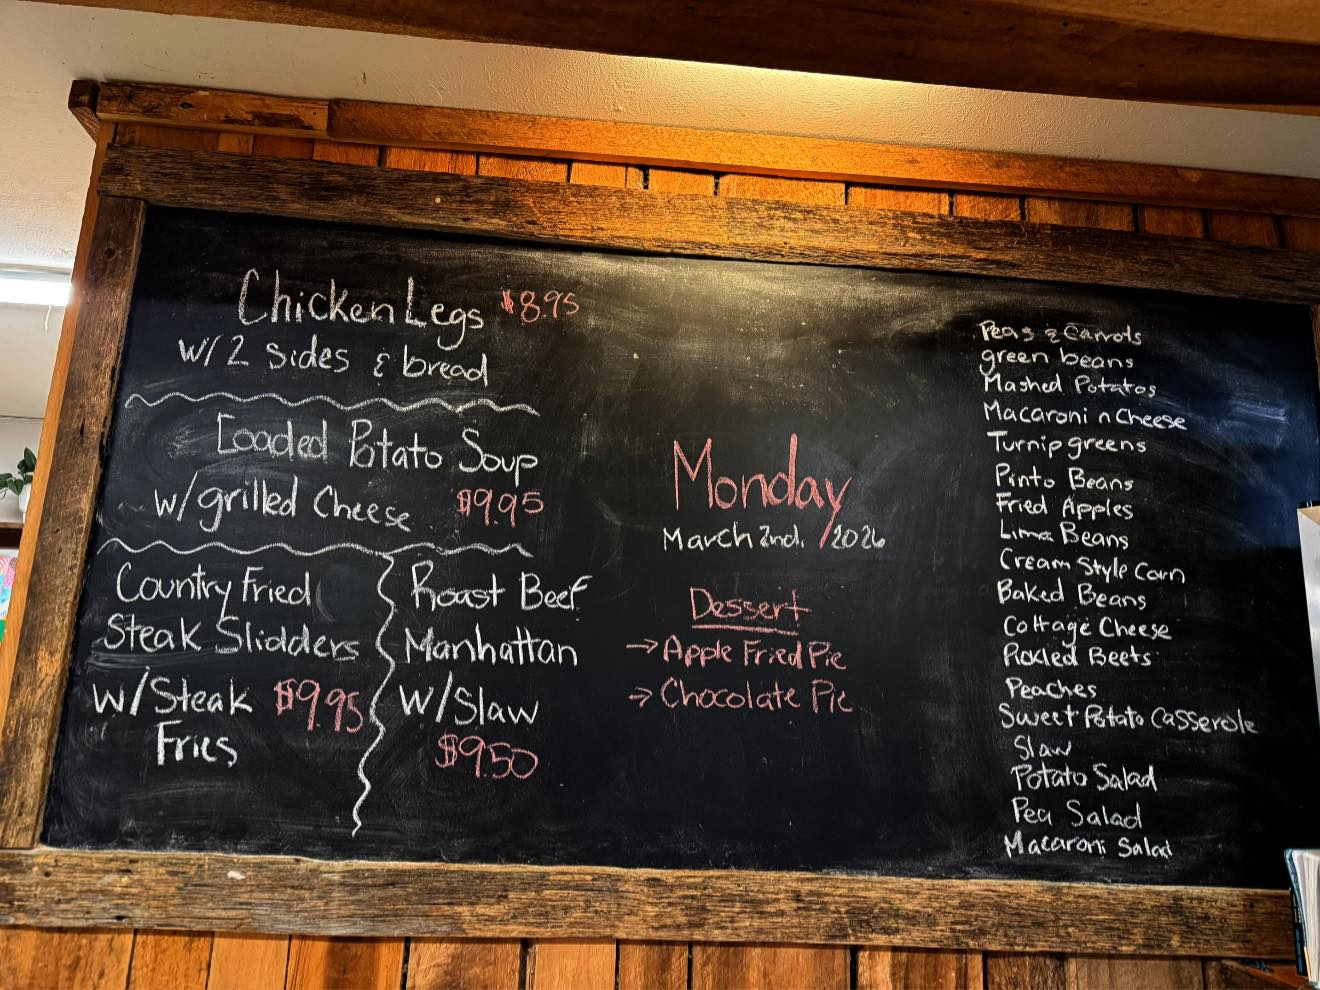 Chicken Legs $8.95
w/ 2 sides & bread
Loaded Potato Soup
w/grilled Cheese $9.95
Country Fried
Steak Slidders
w/Steak $9.95
Fries
Roast Beef
Manhattan
w/Slaw
$9.50
Monday
March 2nd, /2026
Dessert
→ Apple Fried Pie
→ Chocolate Pie
Peas & Carrots
green beans
Mashed Potatos
Macaroni n Cheese
Turnip greens
Pinto Beans
Fried Apples
Lima Beans
Cream Style Corn
Baked Beans
Cottage Cheese
Pickled Beets
Peaches
Sweet Potato Casserole
Slaw
Potato Salad
Pea Salad
Macaroni Salad